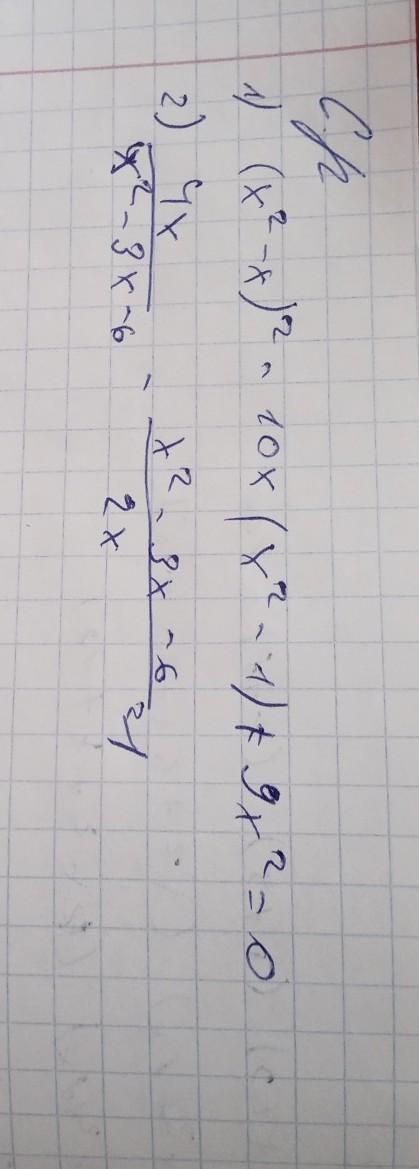 1) (x² - x)² - 10x (x² - 1) + 9x² = 0
2) 4x / (x² - 3x - 6) - (x² - 3x - 6) / 2x = 1